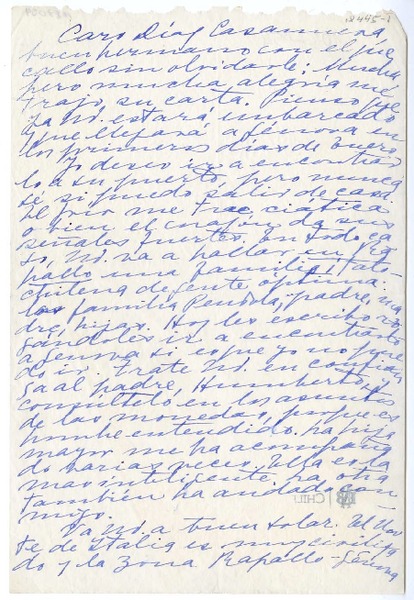 2445-1
Caro Díaz Casanueva,
buen hermano con el que
callo sin olvidarle: Mucha
pero mucha alegría me
trajo, su carta. Pienso que
ya Ud. estará embarcado
y que llegará a Génova en
los primeros días de Enero.
Yo deseo ir a encontrar
lo a su puerto, pero nunca
sé si puedo salir de casa.
El frío me trae ciática
o bien el corazón da sus
señales fuertes. En todo ca
so, Ud. va a hallar en Ra
pallo una familia italo
chilena de gente óptima:
la familia Pendola, padre, ma
dre, hijas. Hoy les escribo ro
gándoles ir a encontrarlo
a Génova si es que yo no pue
do ir. Trate Ud. en confian
za al padre, Humberto, y
consúltelo en los asuntos
de las monedas, porque es
hombre entendido. La hija
mayor me ha acompaña
do varias veces. Ella es la
más inteligente. La otra
también ha andado con
migo.
Va Ud. a buen solar. El Nor
te de Italia es muy civiliza
do y la zona Rapallo-Génova